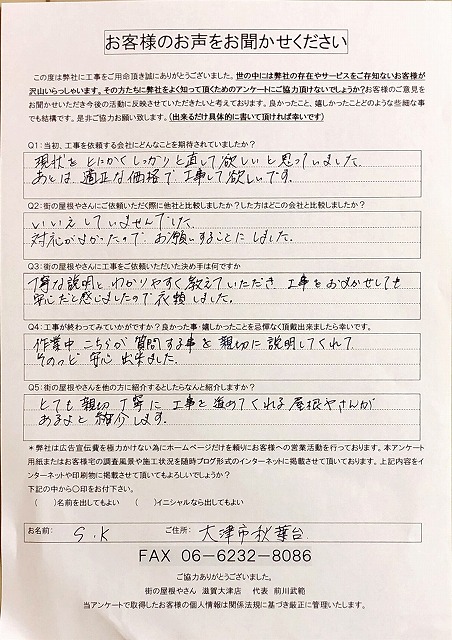 お客様のお声をお聞かせください
この度は弊社に工事をご用命頂き誠にありがとうございました。世の中には弊社の存在やサービスをご存知ないお客様が
沢山いらっしゃいます。その方たちに弊社をよく知って頂くためのアンケートにご協力頂けないでしょうか?お客様のご意見を
お聞かせいただき今後の活動に反映させていただきたいと考えております。良かったこと、嬉しかったことどのような些細な事
でも結構です。是非ご協力お願い致します。(出来るだけ具体的に書いて頂ければ幸いです)
Q1:当初、工事を依頼する会社にどんなことを期待されていましたか?
現状をとにかくしっかりと直して欲しいと思っていました。
あとは、適正な価格で工事して欲しいです。
Q2:街の屋根やさんにご依頼いただく際に他社と比較しましたか?した方はどこの会社と比較しましたか?
いいえしていませんでした。
対応がよかったので、お願いすることにしました。
Q3:街の屋根やさんに工事をご依頼いただいた決め手は何ですか
丁寧な説明とわかりやすく教えていただき、工事をおまかせしても
安心だと感じましたので依頼しました。
Q4:工事が終わってみていかがですか?良かった事・嬉しかったことを忌憚なく頂戴出来ましたら幸いです。
作業中こちらが質問する事を親切に説明してくれて、
そのつど安心出来ました。
Q5:街の屋根やさんを他の方に紹介するとしたらなんと紹介しますか?
とても親切丁寧に工事を進めてくれる屋根やさんが
あるよと紹介します。
*弊社は広告宣伝費を極力かけない為にホームページだけを頼りにお客様への営業活動を行っております。本アンケート
用紙またはお客様宅の調査風景や施工状況を随時ブログ形式のインターネットに掲載させて頂いております。上記内容をイ
ンターネットや印刷物に掲載させて頂いてもよろしいでしょうか?
下記の中から〇印をお付下さい。
( )名前を出してもよい ( )イニシャルなら出してもよい
お名前: S.K ご住所: 大津市秋葉台
FAX 06-6232-8086
ご協力ありがとうございました。
街の屋根やさん 滋賀大津店 代表 前川武範
当アンケートで取得したお客様の個人情報は関係法規に基づき厳正に管理いたします。